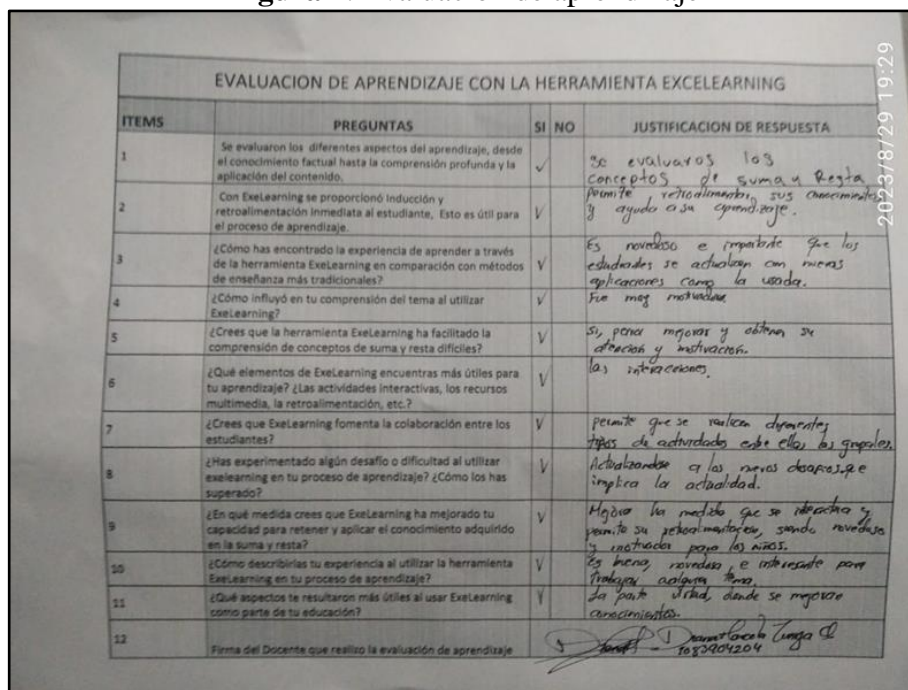 EVALUACION DE APRENDIZAJE CON LA HERRAMIENTA EXCELEARNING
ITEMS PREGUNTAS SI NO JUSTIFICACION DE RESPUESTA
1 Se evaluaron los diferentes aspectos del aprendizaje, desde
el conocimiento factual hasta la comprensión profunda y la
aplicación del contenido.
✓
se evaluaros los
conceptos de suma y Resta
2 Con ExeLearning se proporcionó Inducción y
retroalimentación inmediata al estudiante, Esto es útil para
el proceso de aprendizaje.
✓
Permite retroalimentar sus conocimientos
y ayuda a su aprendizaje.
3 ¿Cómo has encontrado la experiencia de aprender a través
de la herramienta ExeLearning en comparación con métodos
de enseñanza más tradicionales?
✓
Es novedoso e importante que los
estudiantes se actualizen con nuevas
aplicaciones como la usada.
4 ¿Cómo influyó en tu comprensión del tema al utilizar
ExeLearning?
✓
Fue muy motivadora
5 ¿Crees que la herramienta ExeLearning ha facilitado la
comprensión de conceptos de suma y resta difíciles?
✓
Si, mejorar y obtener su
atención y motivación.
6 ¿Qué elementos de ExeLearning encuentras más útiles para
tu aprendizaje? ¿Las actividades interactivas, los recursos
multimedia, la retroalimentación, etc.?
✓
las interacciones.
7 ¿Crees que ExeLearning fomenta la colaboración entre los
estudiantes?
✓
permite que se realicen diferentes
tipos de actividades entre ellas las grupales.
8 ¿Has experimentado algún desafío o dificultad al utilizar
exelearning en tu proceso de aprendizaje? ¿Cómo los has
superado?
✓
Actualizandose a los nuevos desafios que
implica la actualidad.
9 ¿En qué medida crees que ExeLearning ha mejorado tu
capacidad para retener y aplicar el conocimiento adquirido
en la suma y resta?
✓
Mejora ha medida que se interactua y
permite su retroalimentación, siendo novedoso
y motivador para los niños.
10 ¿Cómo describirías tu experiencia al utilizar la herramienta
ExeLearning en tu proceso de aprendizaje?
✓
Es buena, novedosa, e interesante para
trabajar tema.
11 ¿Qué aspectos te resultaron más útiles al usar ExeLearning
como parte de tu educación?
✓
La parte donde se mejoran
conocimientos.
12 Firma del Docente que realizo la evaluación de aprendizaje
1083904204
2023/8/29 19:29